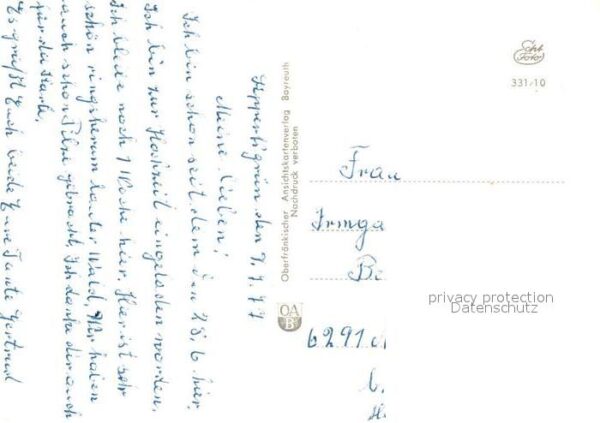 Geppertsgrün, den 9.7.77
Meine Lieben!
Ich bin schon seit dem den 28.6. hier.
Ich bin zur Hochzeit eingeladen worden.
Ich bleibe noch 1 Woche hier. Hier ist sehr
schön ringsherum lauter Wald. Wir haben
auch schon Pilze gebracht. Ich danke dir auch
für die Karte.
Es grüßt Euch beide Eure Tante Gertrud
Oberfränkischer Ansichtskartenverlag Bayreuth
Nachdruck verboten
OA
B
Echt
Foto
331/10
Frau
Irmga
Be
privacy protection
Datenschutz
6291